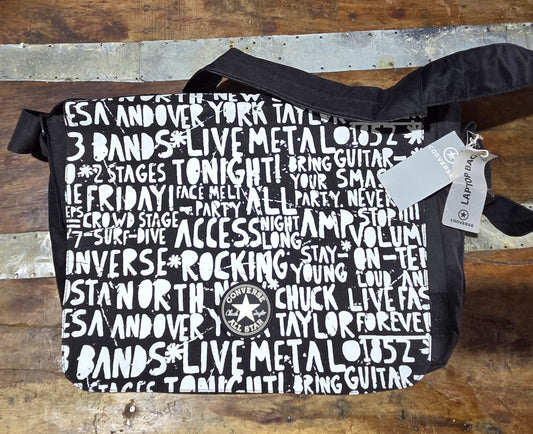 NORTH NEW
ESA ANDOVER YORK TAYLOR
3 BANDS*LIVE METAL 01852*
*2 STAGES TONIGHT! BRING GUITAR-
YOUR SMAS
FRIDAY! FACE MELT ALL PARTY. NEVER
PARTY
CROWD STAGE ACCESS NIGHT LONG AMP STOP!!!
SURF-DIVE VOLUM
STAY- ON-TEN
ONVERSE*ROCKING YOUNG LOUD AND
OSTA NORTH NEW CHUCK LIVE FAS
ESA ANDOVER YORK TAYLOR FOREVER
3 BANDS*LIVE METAL 01852*
STAGES TONIGHT! BRING GUITAR
CONVERSE
ALL STAR
CONVERSE
LAPTOP BAG
CONVERSE